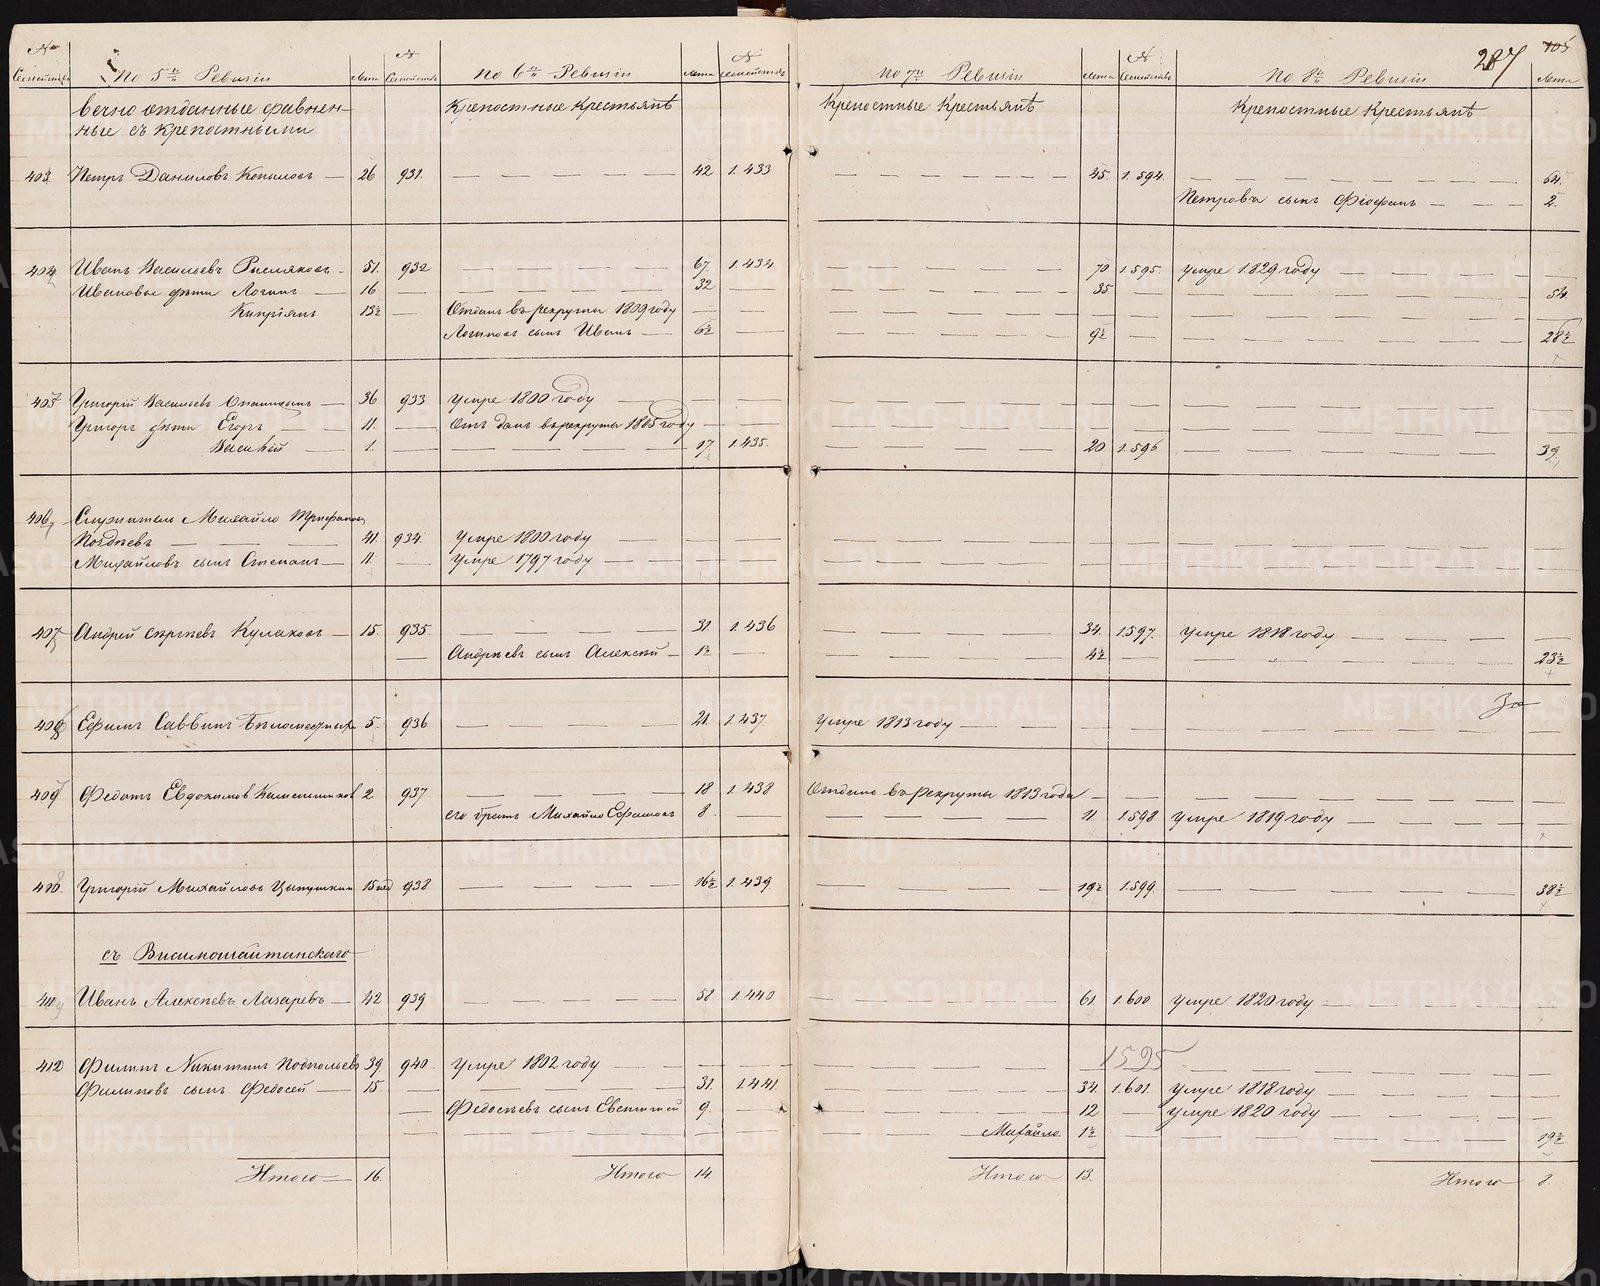 № Семейства По 5й Ревизiи Лета № Семействъ По 6й Ревизiи Лета № Семействъ По 7й Ревизiи Лета № Семействъ По 8й Ревизiи Лета
287 105
вечно отданные сравнен- Крепостные Крестьянѣ Крепостные Крестьянѣ Крепостные Крестьянѣ
ные съ крепостными
403 Петръ Даниловъ Копыловъ 26 931. 42 1.433 45. 1.594.
Петрова сынъ Фiофанъ 2.
404 Иванъ Васильевъ 51. 932 67. 1.434 70 1.595. умре 1829 году
Ивановы дѣти Логинъ 16 32 35 54.
Кипрiянъ 13½ Отданъ въ рекруты 1809 году
Логиновъ сынъ Иванъ 6½ 9½ 28½
405 Григорiй Васильевъ 36 933 умре 1800 году
Григорь дѣти Егоръ 11. Отъ данъ въ рекруты 1805 году
Василей 1. 17. 1.435. 20 1.596 39.
406 Служитель Михайло Трифановъ
41 934. умре 1800 году
Михайловъ сынъ Степанъ 11. умре 1797 году
407 Андрей Сергѣевъ Кулаковъ 15. 935. 31. 1.436 34. 1.597. умре 1818 году
Андрѣевъ сынъ Алексѣй 1½ 4½ 23½
За
408 Ефимъ Саввинъ 5. 936 21. 1.437. умре 1813 году
409 Федотъ Евдокимовъ 2 937 18 1.438 Отданъ въ рекруты 1813 года
его братъ Михайло Ефимовъ 8. 11 1598 умре 1819 году
410. Григорiй Михайловъ Цыпушкин 15 нед 938 16½ 1.439. 19½ 1.599. 38½
съ Висимошайтанскаго
411 Иванъ Алексѣевъ Лазаревъ 42 939 58 1.440 61. 1.600 умре 1820 году
1595
412 Филипъ Никитинъ 39. 940. умре 1802 году
Филиповъ сынъ Федосей 15. 31. 1.441 34. 1.601. умре 1818 году
Федосѣевъ сынъ Евстигней 9. 12 умре 1820 году
Михайло 1½ 19½
Итого 16. Итого 14. Итого 13. Итого 8.
METRIKI.GASO-URAL.RU